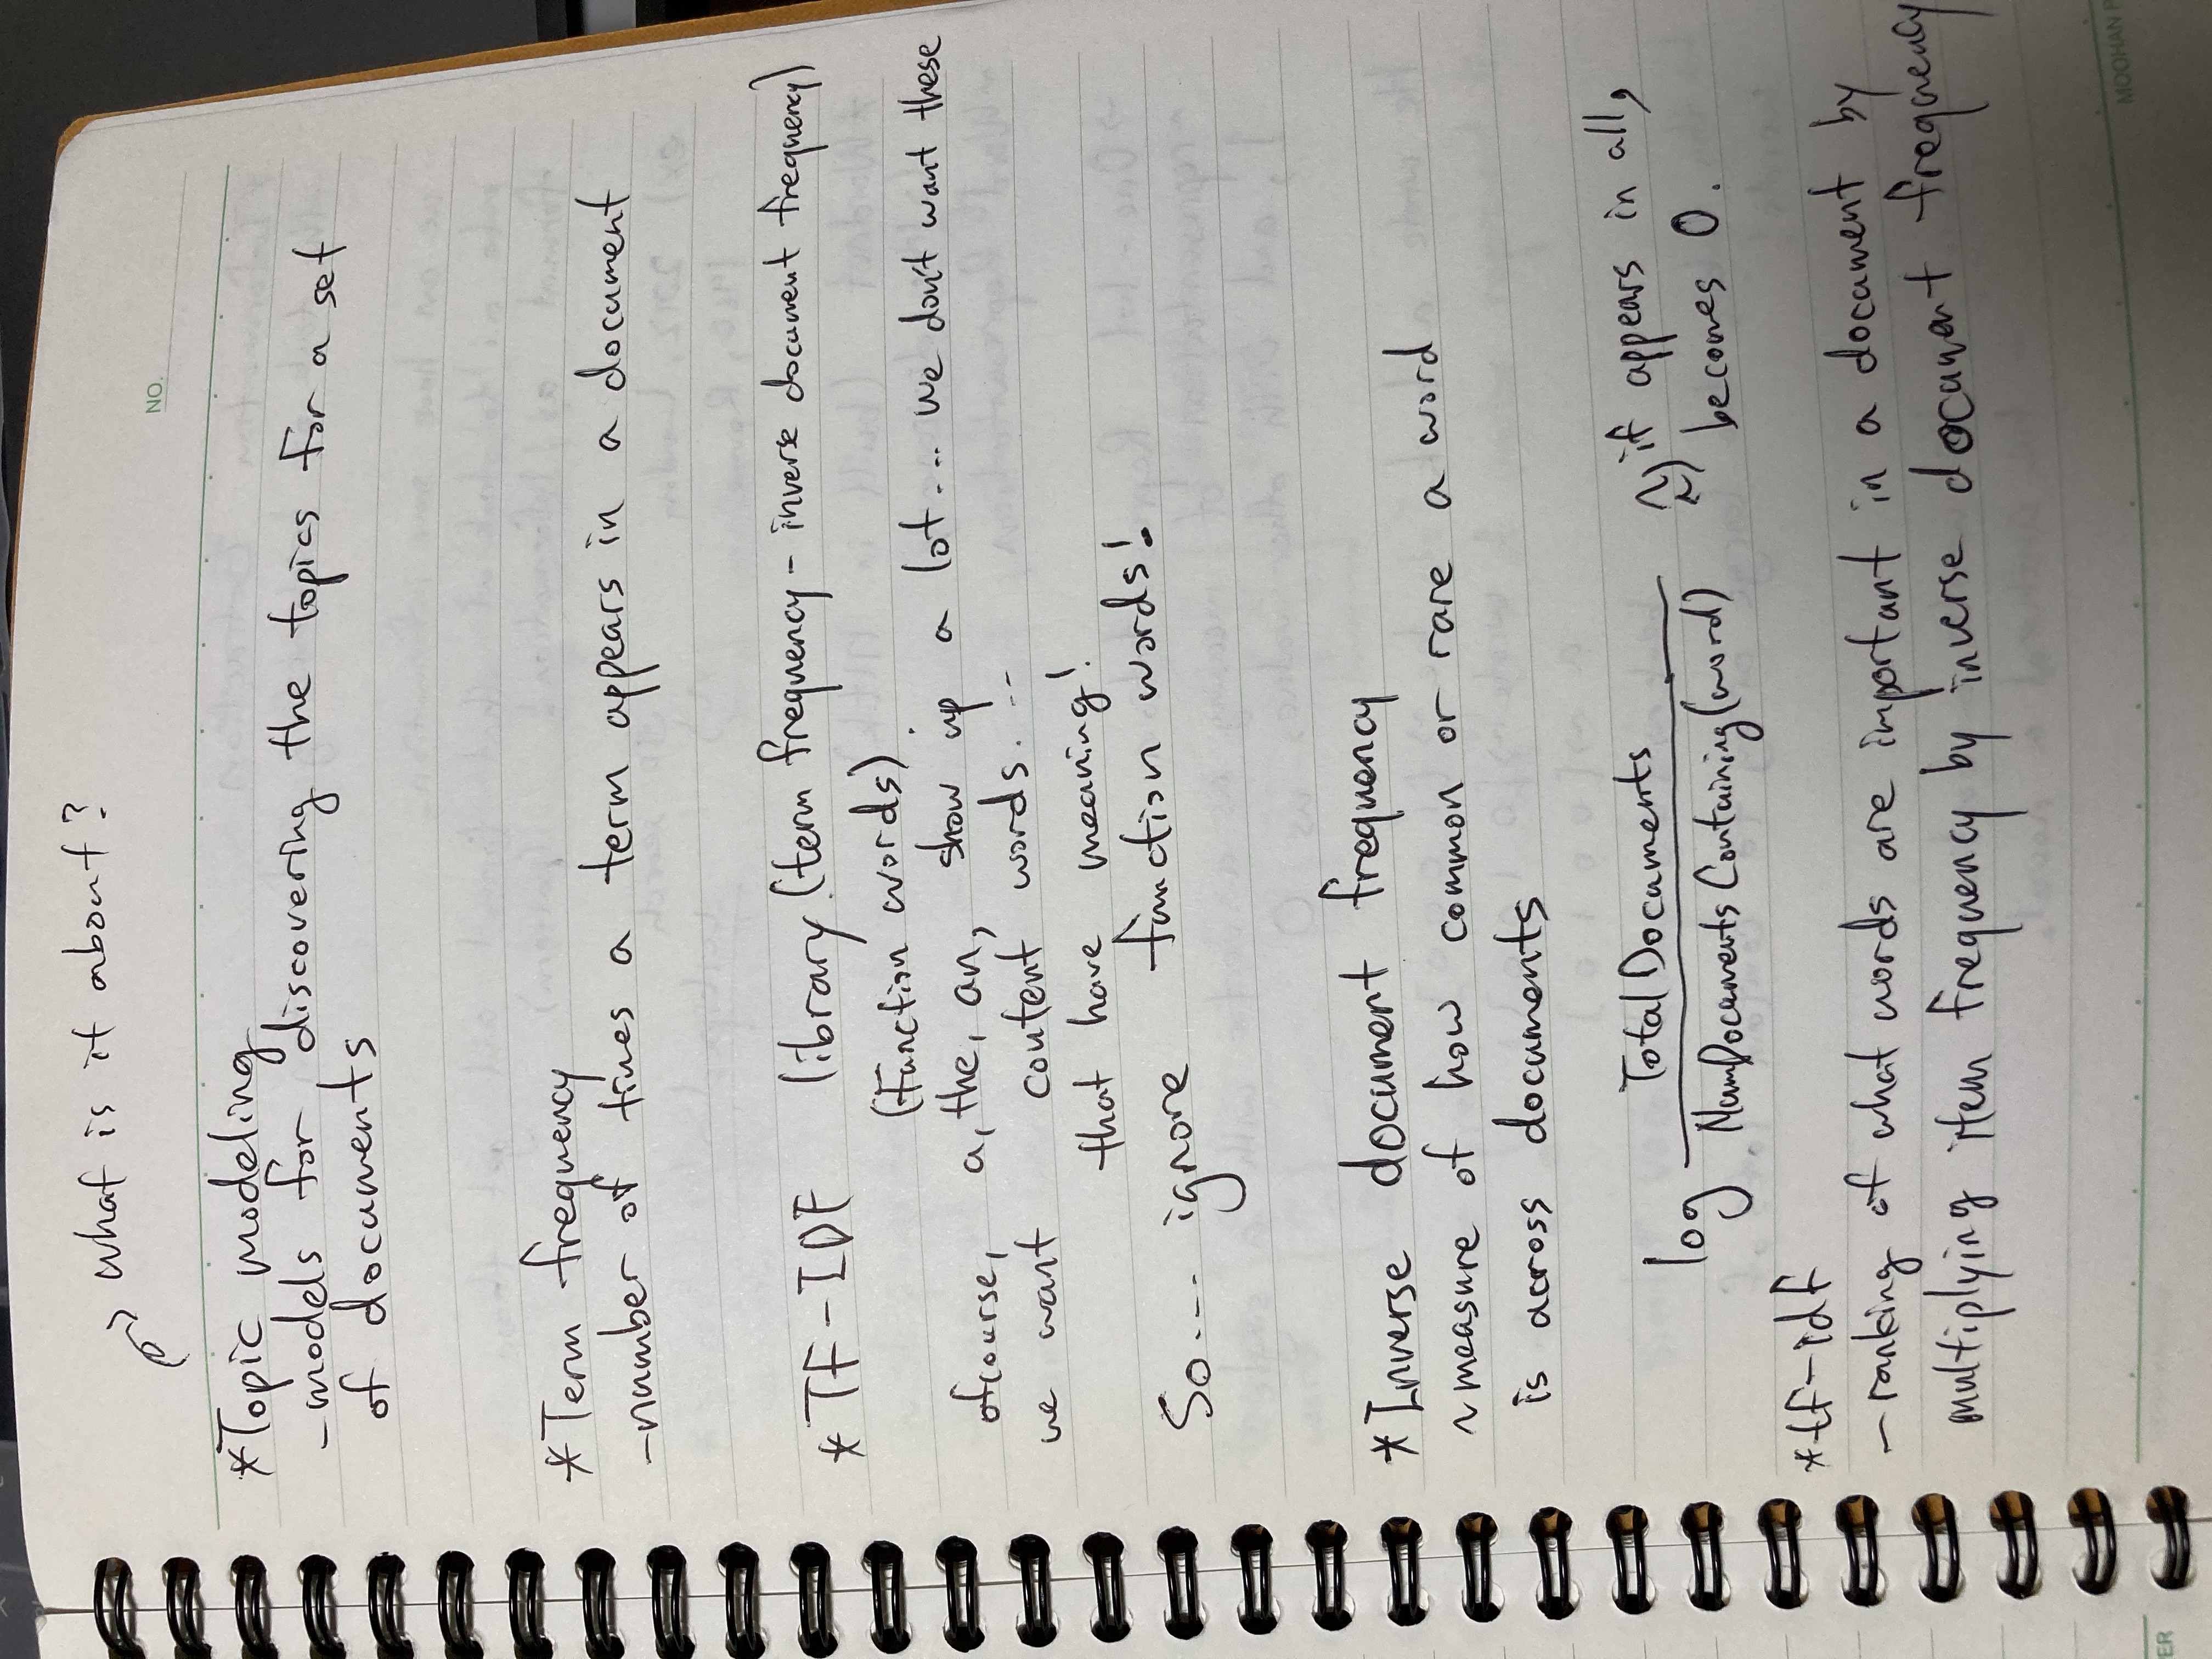 what is it about?
NO.
*Topic modeling
-models for discovering the topics for a set
of documents
*Term frequency
-number of times a term appears in a document
*TF-IDF library (term frequency - inverse document frequency)
(function words)
ofcourse, a, the, an, show up a lot... we don't want these
we want content words...
that have meaning!
So.... ignore function words!
*Inverse document frequency
~measure of how common or rare a word
is across documents
log TotalDocuments / NumDocumentsContaining(word) if appears in all,
becomes 0.
*tf-idf
-ranking of what words are important in a document by
multiplying item frequency by inverse document frequency
MOOHAN P
ER